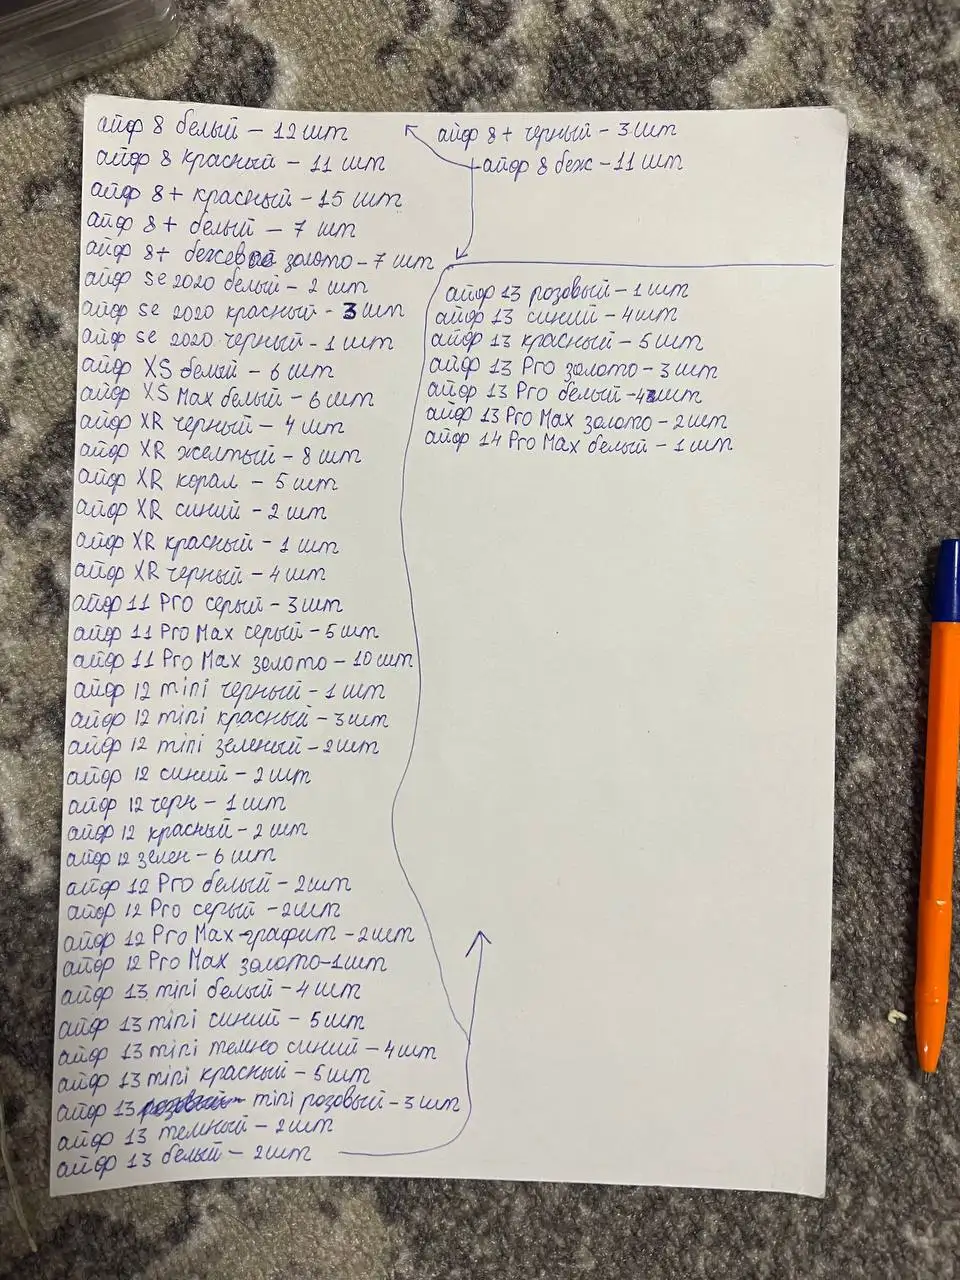 айф 8 белый – 12 шт
айф 8 красный – 11 шт
айф 8+ красный – 15 шт
айф 8+ белый – 7 шт
айф 8+ бежевый золото – 7 шт
айф se 2020 белый – 2 шт
айф se 2020 красный – 3 шт
айф se 2020 черный – 1 шт
айф XS белый – 6 шт
айф XS Max белый – 6 шт
айф XR черный – 4 шт
айф XR желтый – 8 шт
айф XR корал – 5 шт
айф XR синий – 2 шт
айф XR красный – 1 шт
айф XR черный – 4 шт
айф 11 Pro серый – 3 шт
айф 11 Pro Max серый – 5 шт
айф 11 Pro Max золото – 10 шт
айф 12 mini черный – 1 шт
айф 12 mini красный – 3 шт
айф 12 mini зеленый – 2 шт
айф 12 синий – 2 шт
айф 12 черн – 1 шт
айф 12 красный – 2 шт
айф 12 зелен – 6 шт
айф 12 Pro белый – 2 шт
айф 12 Pro серый – 2 шт
айф 12 Pro Max графит – 2 шт
айф 12 Pro Max золото – 1 шт
айф 13 mini белый – 4 шт
айф 13 mini синий – 5 шт
айф 13 mini темно синий – 4 шт
айф 13 mini красный – 5 шт
айф 13 розовый mini розовый – 3 шт
айф 13 темный – 2 шт
айф 13 белый – 2 шт
айф 8+ черный – 3 шт
айф 8 беж – 11 шт
айф 13 розовый – 1 шт
айф 13 синий – 4 шт
айф 13 красный – 5 шт
айф 13 Pro золото – 3 шт
айф 13 Pro белый – шт
айф 13 Pro Max золото – 2 шт
айф 14 Pro Max белый – 1 шт